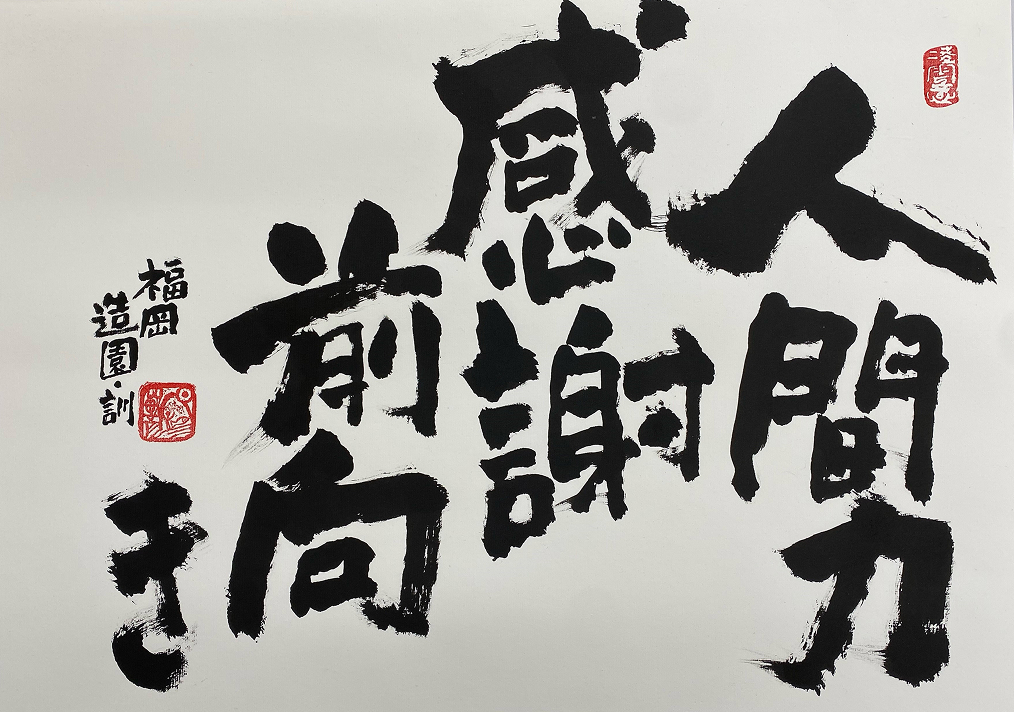 人間力
感謝
前向き
福岡
造園・訓